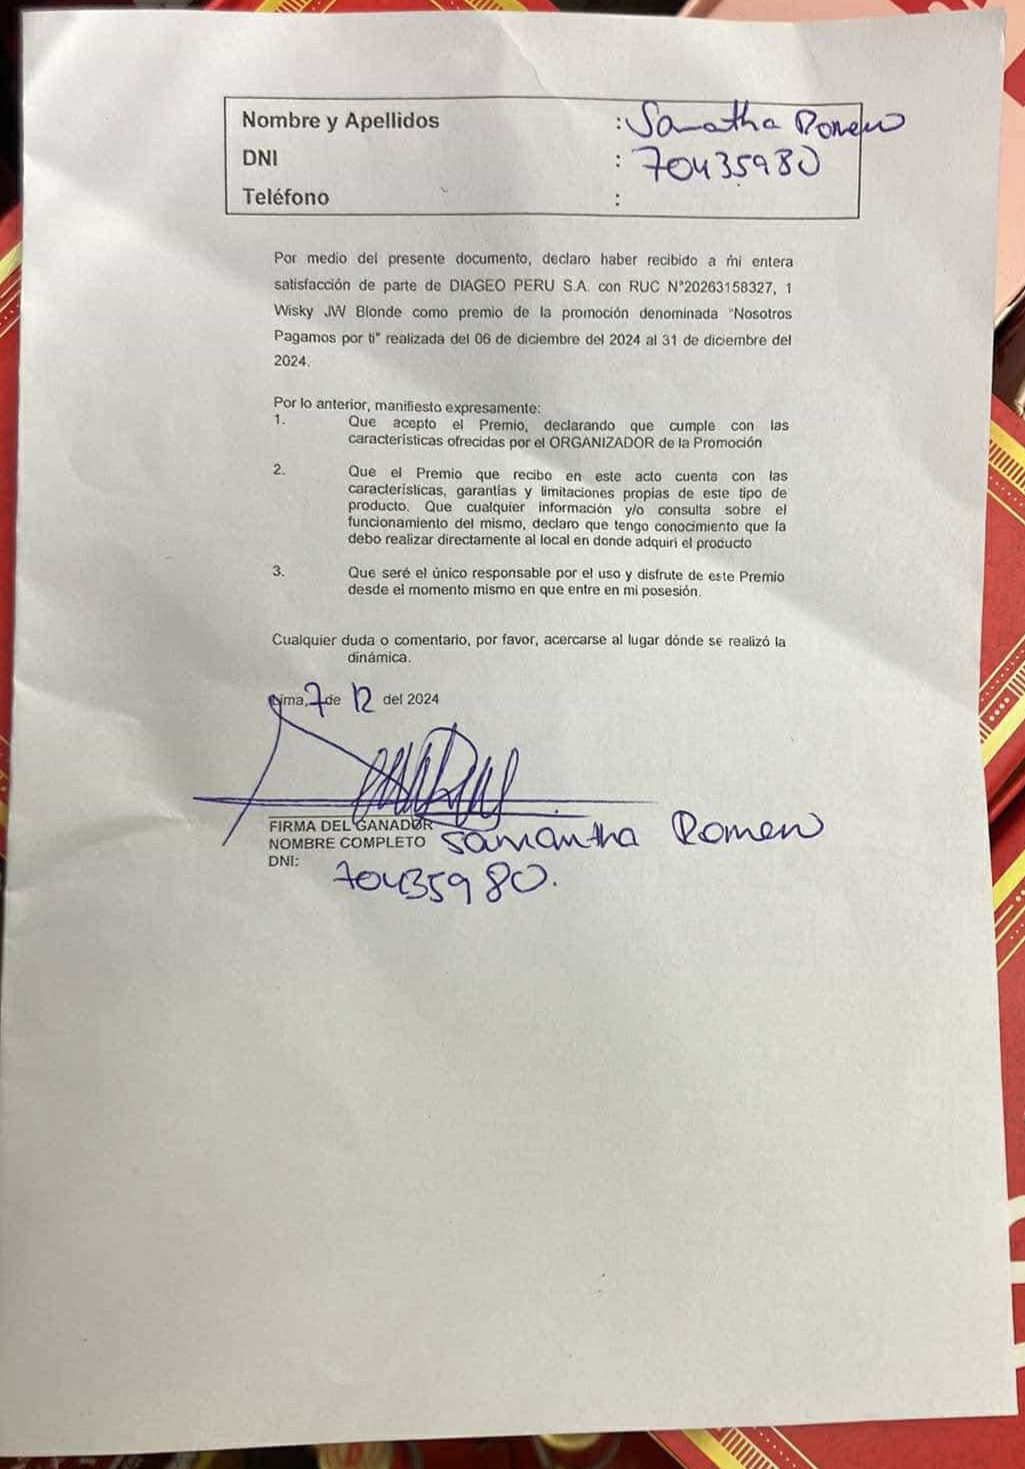 Nombre y Apellidos : Samatha Romero
DNI : 70435980
Teléfono :
Por medio del presente documento, declaro haber recibido a mi entera
satisfacción de parte de DIAGEO PERU S.A. con RUC N°20263158327, 1
Wisky JW Blonde como premio de la promoción denominada "Nosotros
Pagamos por ti" realizada del 06 de diciembre del 2024 al 31 de diciembre del
2024.
Por lo anterior, manifiesto expresamente:
1. Que acepto el Premio, declarando que cumple con las
características ofrecidas por el ORGANIZADOR de la Promoción
2. Que el Premio que recibo en este acto cuenta con las
características, garantías y limitaciones propias de este tipo de
producto. Que cualquier información y/o consulta sobre el
funcionamiento del mismo, declaro que tengo conocimiento que la
debo realizar directamente al local en donde adquirí el producto
3. Que seré el único responsable por el uso y disfrute de este Premio
desde el momento mismo en que entre en mi posesión.
Cualquier duda o comentario, por favor, acercarse al lugar dónde se realizó la
dinámica.
Lima, 7 de 12 del 2024
FIRMA DEL GANADOR
NOMBRE COMPLETO Samantha Romero
DNI: 70435980.